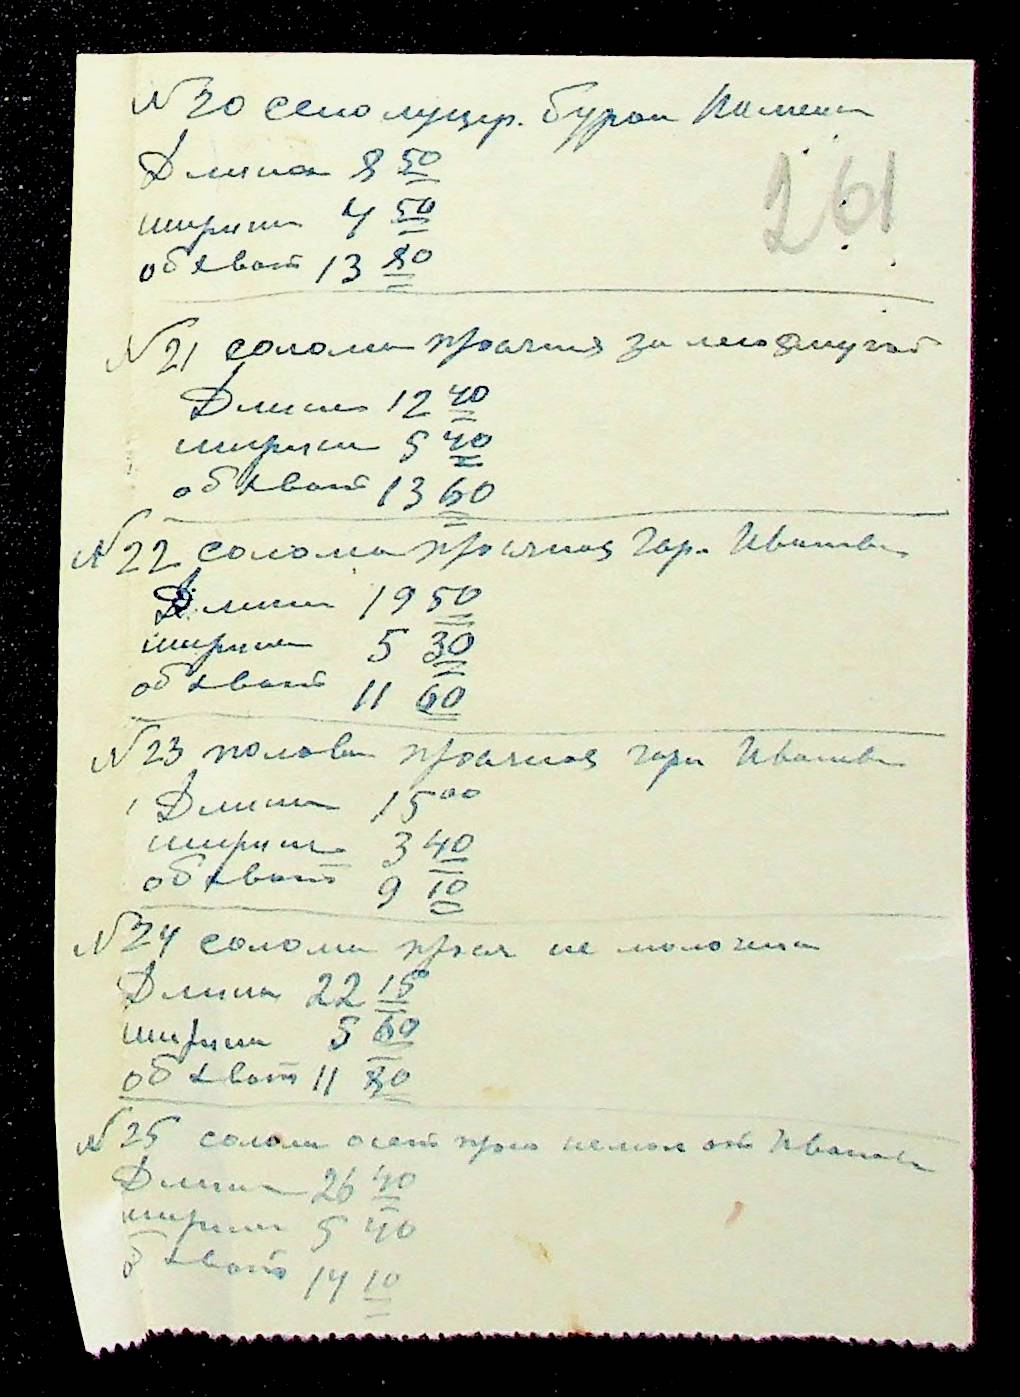 N 20 сено люцер. буран Камени
Длина 8 50
ширин 4 50
обхват 13 80
261
N 21 солома просяная за
Длина 12 40
ширин 5 40
обхват 13 60
N 22 солома просяная гари Иванови
Длина 19 50
ширина 5 30
обхват 11 60
N 23 полова просяная гари Иванови
Длина 15 00
ширин 3 40
обхват 9 10
N 24 солома прося не молочена
Длина 22 15
ширина 5 60
обхват 11 80
N 25 солом просо немол от Иванови
Длина 26 40
ширин 5 40
обхват 14 10